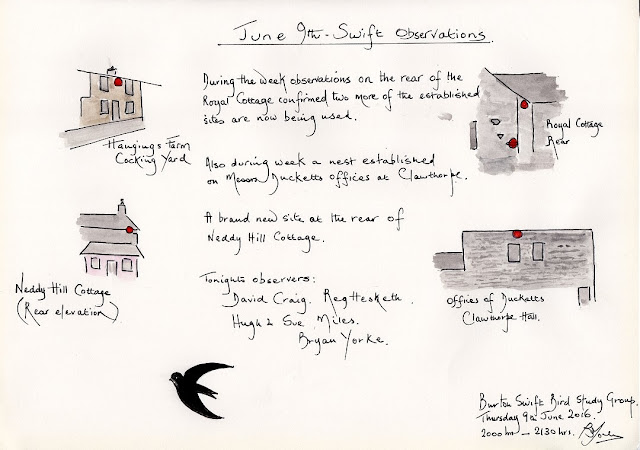 June 9th - Swift Observations.
During the week observations on the rear of the
Royal Cottage confirmed two more of the established
sites are now being used.
Hangings Farm
Cocking Yard
Royal Cottage
Rear
Also during week a nest established
on Messrs Ducketts offices at Clawthorpe.
A brand new site at the rear of
Neddy Hill Cottage.
Neddy Hill Cottage
(Rear elevation)
Tonights observers:
David Craig. Reg Hesketh.
Hugh & Sue Miles.
Bryan Yorke.
Offices of Ducketts
Clawthorpe Hall.
Burton Swift Bird Study Group.
Thursday 9th June 2016.
2000hr - 2130hrs.